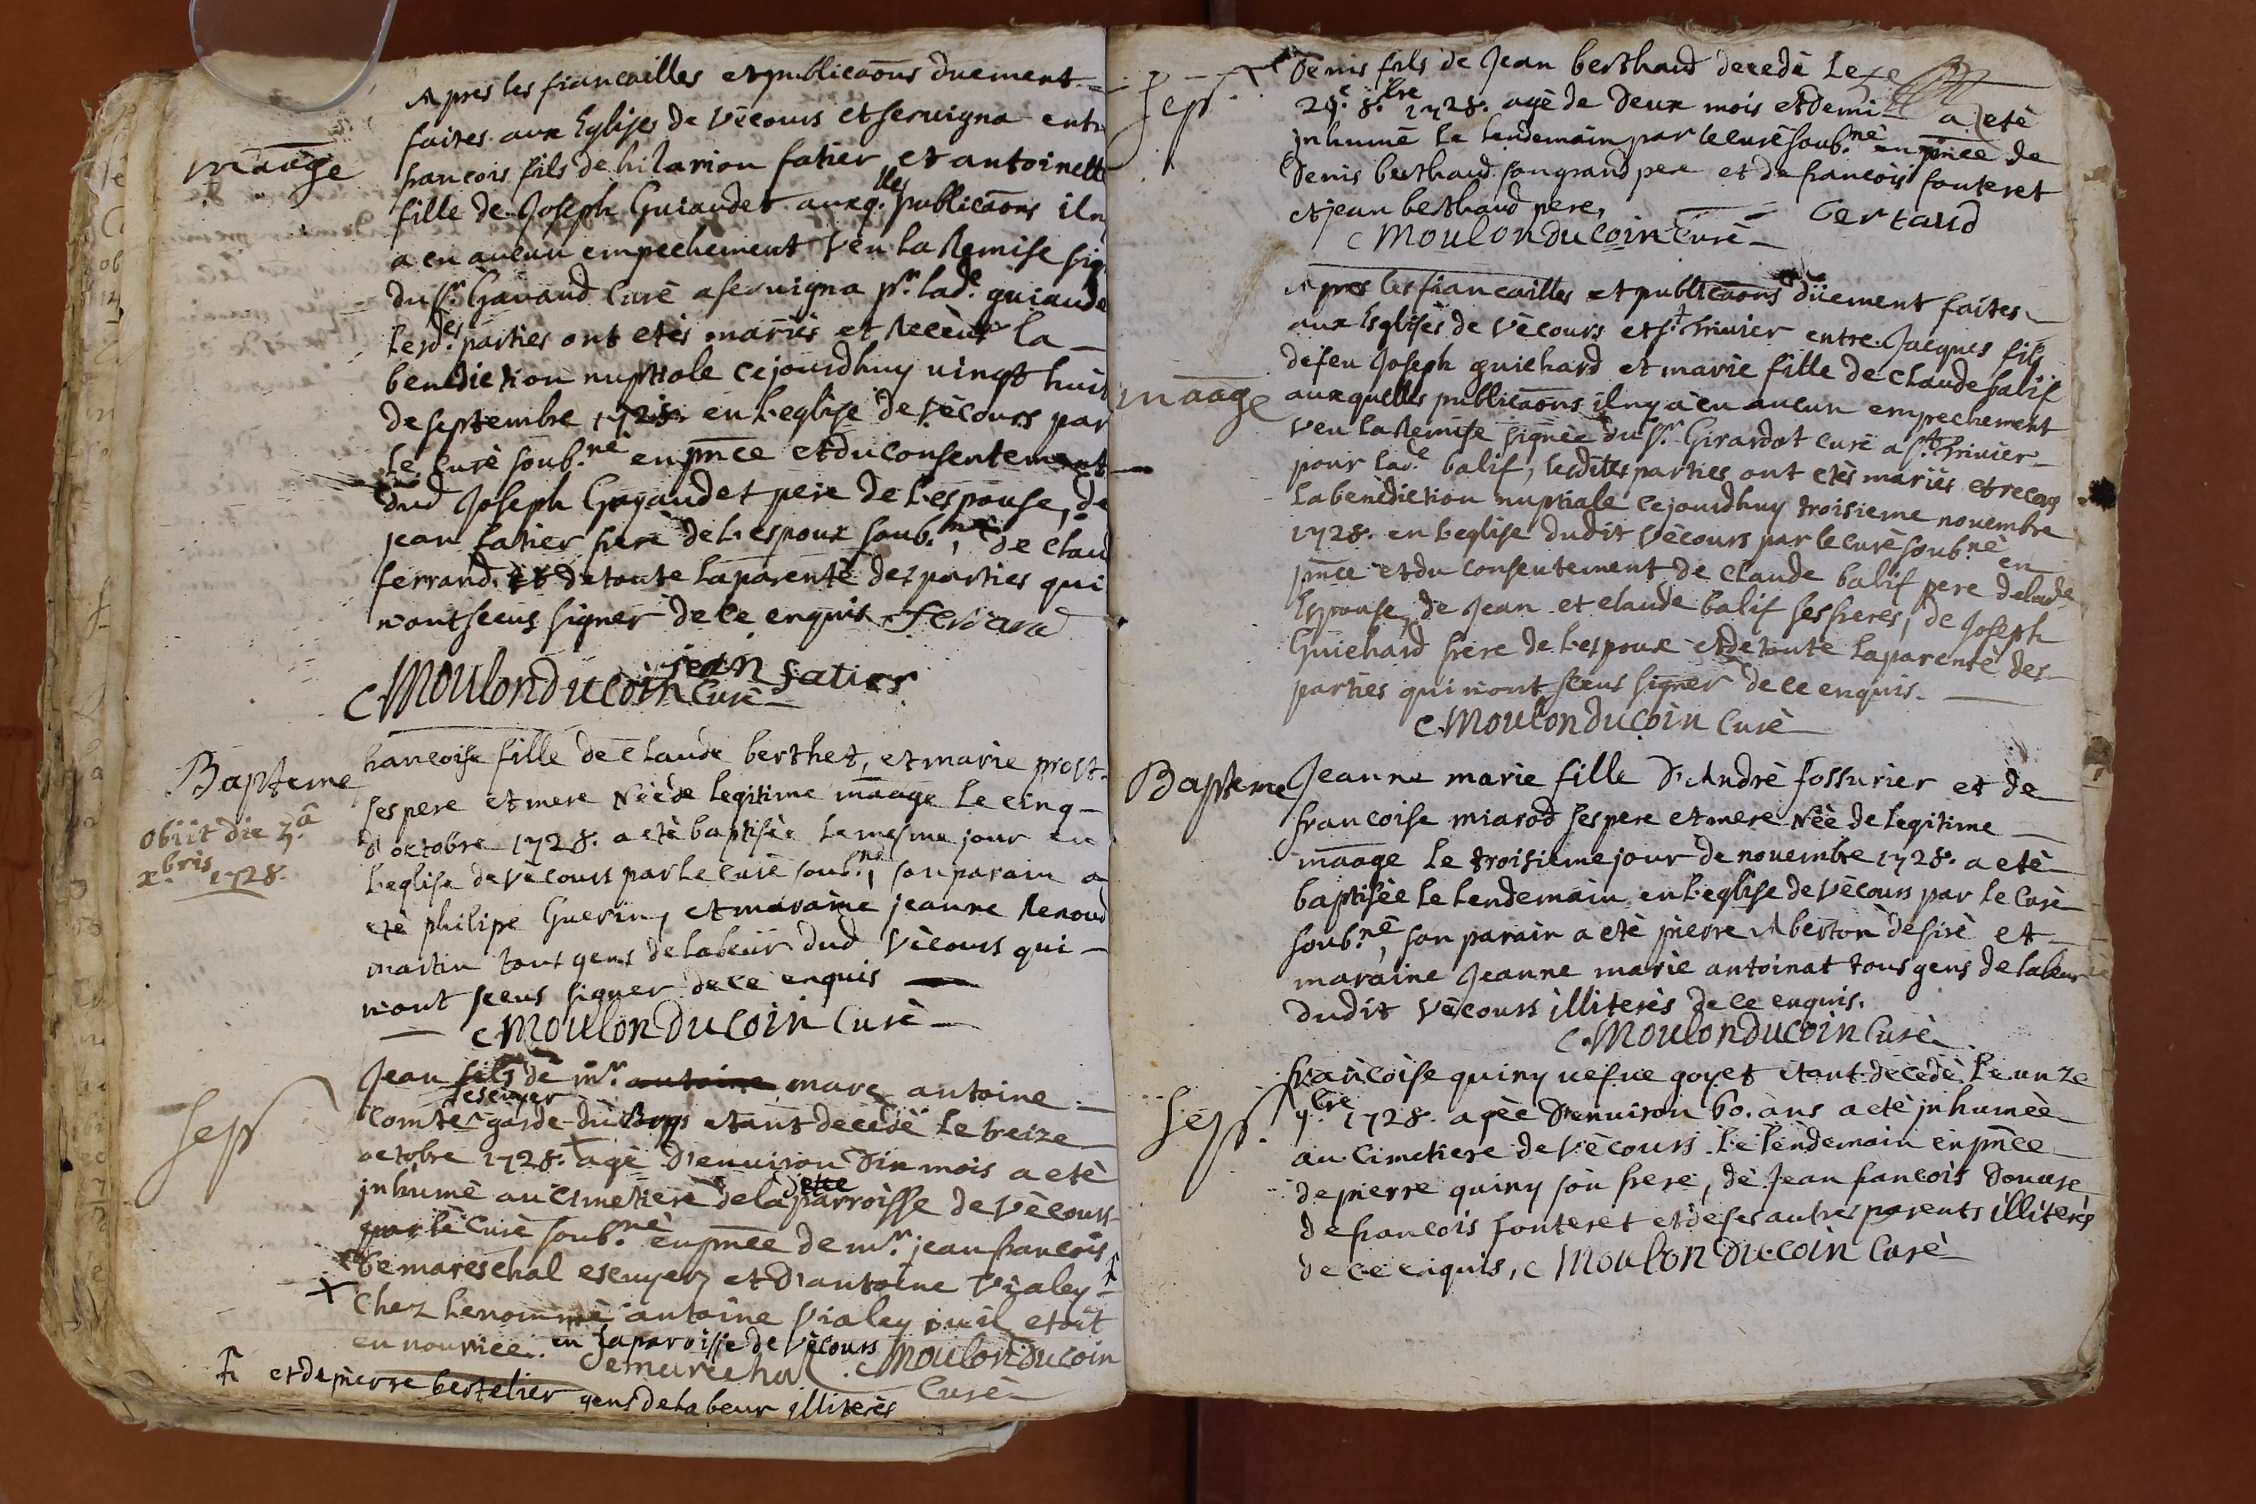 Apres les fiancailles et publicaõns duement
faites aux Eglises de Vècours et servigna entre
maage
francois fils de hilarion fatier et antoinette
fille de Joseph Guiaudet auxq.lles publicaõns il n
a eu aucun empechement veu la Remise sig
du Sr. Gavaud Curè a servigna pr. lade. guiaude
lesd.es parties ont etès mariès et Recèur la
benediction nuptiale cejourdhuy vingt huit
de septembre 1728. en l'eglise de Vècours par
le curè soub.nè en pñce et du consentement
dud Joseph Guyaudet pere de l'espouse, de
jean fatier frere de l'espoux soub.nè, de Clau
ferrand. et de toute la parentè des parties qui
n'ont sceus signer de ce enquis ferrand
jean fatier
C. Moulon Du Coin Curè
Bapteme
francoise fille de Claude berthet, et marie prost
ses pere et mere Nèè de legitime maage le cinq
obiit die 3.a
d'octobre 1728. a etè baptisèe le mesme jour en
x.bris 1728.
l'eglise de vècours par le curè soub.nè, son parain a
etè philipe Guerin, et maraine jeanne Renoud
martin tous gens de labeur dud Vècours qui
n'ont sceus signer de ce enquis
C. Moulon Du Coin Curè
Jean fils de mr. antoine marc antoine
escuier
Comte garde du Corps etant decedè le treize
sep
octobre 1728. agè d'environ Dix mois a etè
inhumè au cimetiere de la parroisse de Vècours
par le curè soub.nè en pñce de mr. jean francois
Demareschal escuyer et d'antoine Vialey
chez le nommè antoine Vialey ou il etoit
en nourice. en la paroisse de Vècours
Demarechal C. Moulon Du Coin
Curè
et de pierre bertelier gens de labeur illiterès
Denis fils de Jean berthaud decedè Le
Sep.
29.e 8.bre 1728. agè de Deux mois et demi a etè
inhumè le lendemain par le curè soub.nè en pñce de
Denis berthaud son grand pere et de francois fonteret
et jean berthaud pere, Bertaud
C. Moulon Du Coin Curè
Apres les fiancailles et publicaõns düement faites
aux Esglises de Vècours et St. trivier entre Jacques fils
de feu Joseph guichard et marie fille de Claude balif
maage
auxquelles publicaõns il n'y a eu aucun emprechement
veu la Remise signèe du Sr. Girardot curè a St. trivier
pour lad.e balif, lesdites parties ont etès mariès et recus
la bènèdiction nuptiale cejourdhuy troisieme novembre
1728. en l'eglise dudit Vècours par le curè soub.nè en
pñce et du consentement de Claude balif pere de lade.
Espouse, de Jean et claude balif ses freres, de Joseph
Guichard frere de l'espoux et de toute la parentè des
parties qui n'ont sceus signer de ce enquis.
C. Moulon Du Coin Curè
Bapteme
Jeanne marie fille D'Andrè fossurier et de
francoise miarod ses pere et mere Nèè de legitime
maage le troisieme jour de novembre 1728. a etè
baptisèe le lendemain en l'eglise de Vècours par le Curè
soub.nè, son parain a etè pierre Aberton dèsirè et
maraine Jeanne marie antoinat tous gens de labeur
dudit Vècours illiterès de ce enquis.
C. Moulon Du Coin Curè
francoise quiny vefve goyet etant decedè le unze
Sep.
9.bre 1728. agèe d'environ 60. ans a etè inhumèe
au cimetiere de Vècours le lendemain en pñce
de pierre quiny son frere, de Jean francois Donure
de francois fonteret et de ses autres parents illiterès
de ce enquis, C. Moulon Du Coin Curè